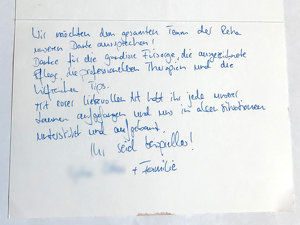 Wir möchten dem gesamten Team der Reha
unseren Dank aussprechen!
Danke für die grandiose Fürsorge, die ausgezeichnete
Pflege, die professionellen Therapien und die
hilfreichen Tips.
Mit eurer liebevollen Art habt ihr jede unserer
Launen aufgefangen und uns in allen Situationen
unterstützt und aufgebaut.
Ihr seid tolle!
+ Familie